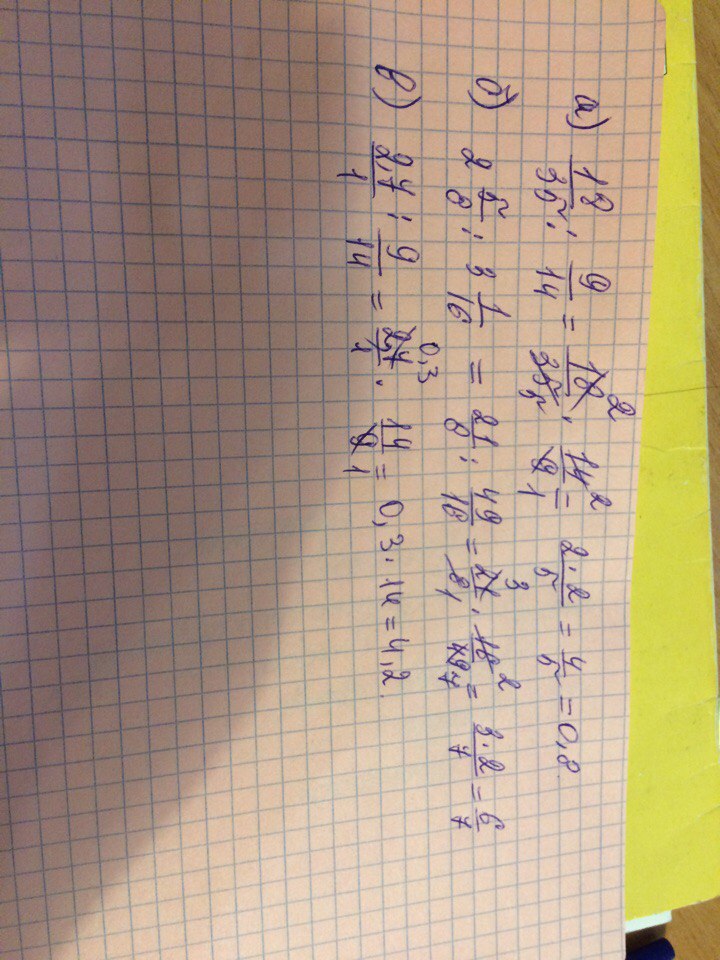 а) 18/35 : 9/14 = 18 2/35 5 · 14 2/9 1 = 2·2/5 = 4/5 = 0,8.
б) 2 5/8 : 3 1/16 = 21/8 : 49/16 = 21 3/8 1 · 16 2/49 7 = 3·2/7 = 6/7
в) 2,7/1 : 9/14 = 2,7 0,3/1 · 14/9 1 = 0,3·14 = 4,2.